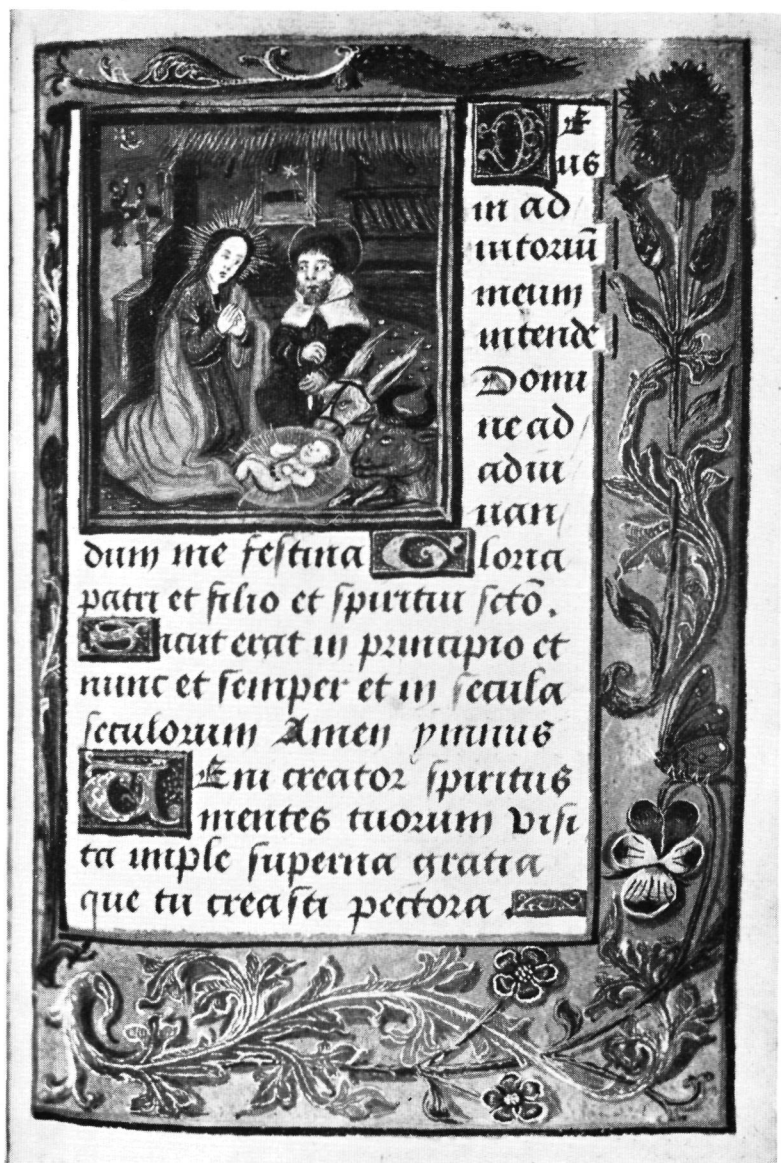 DE
us
in ad
iutoriū
meum
intende
Domi
ne ad
adiu
uan
dum me festina Gloria
patri et filio et spiritui scto.
Sicut erat in principio et
nunc et semper et in secula
seculorum Amen ymnus
UEni creator spiritus
mentes tuorum visi
ta imple superna gratia
que tu creasti pectora.